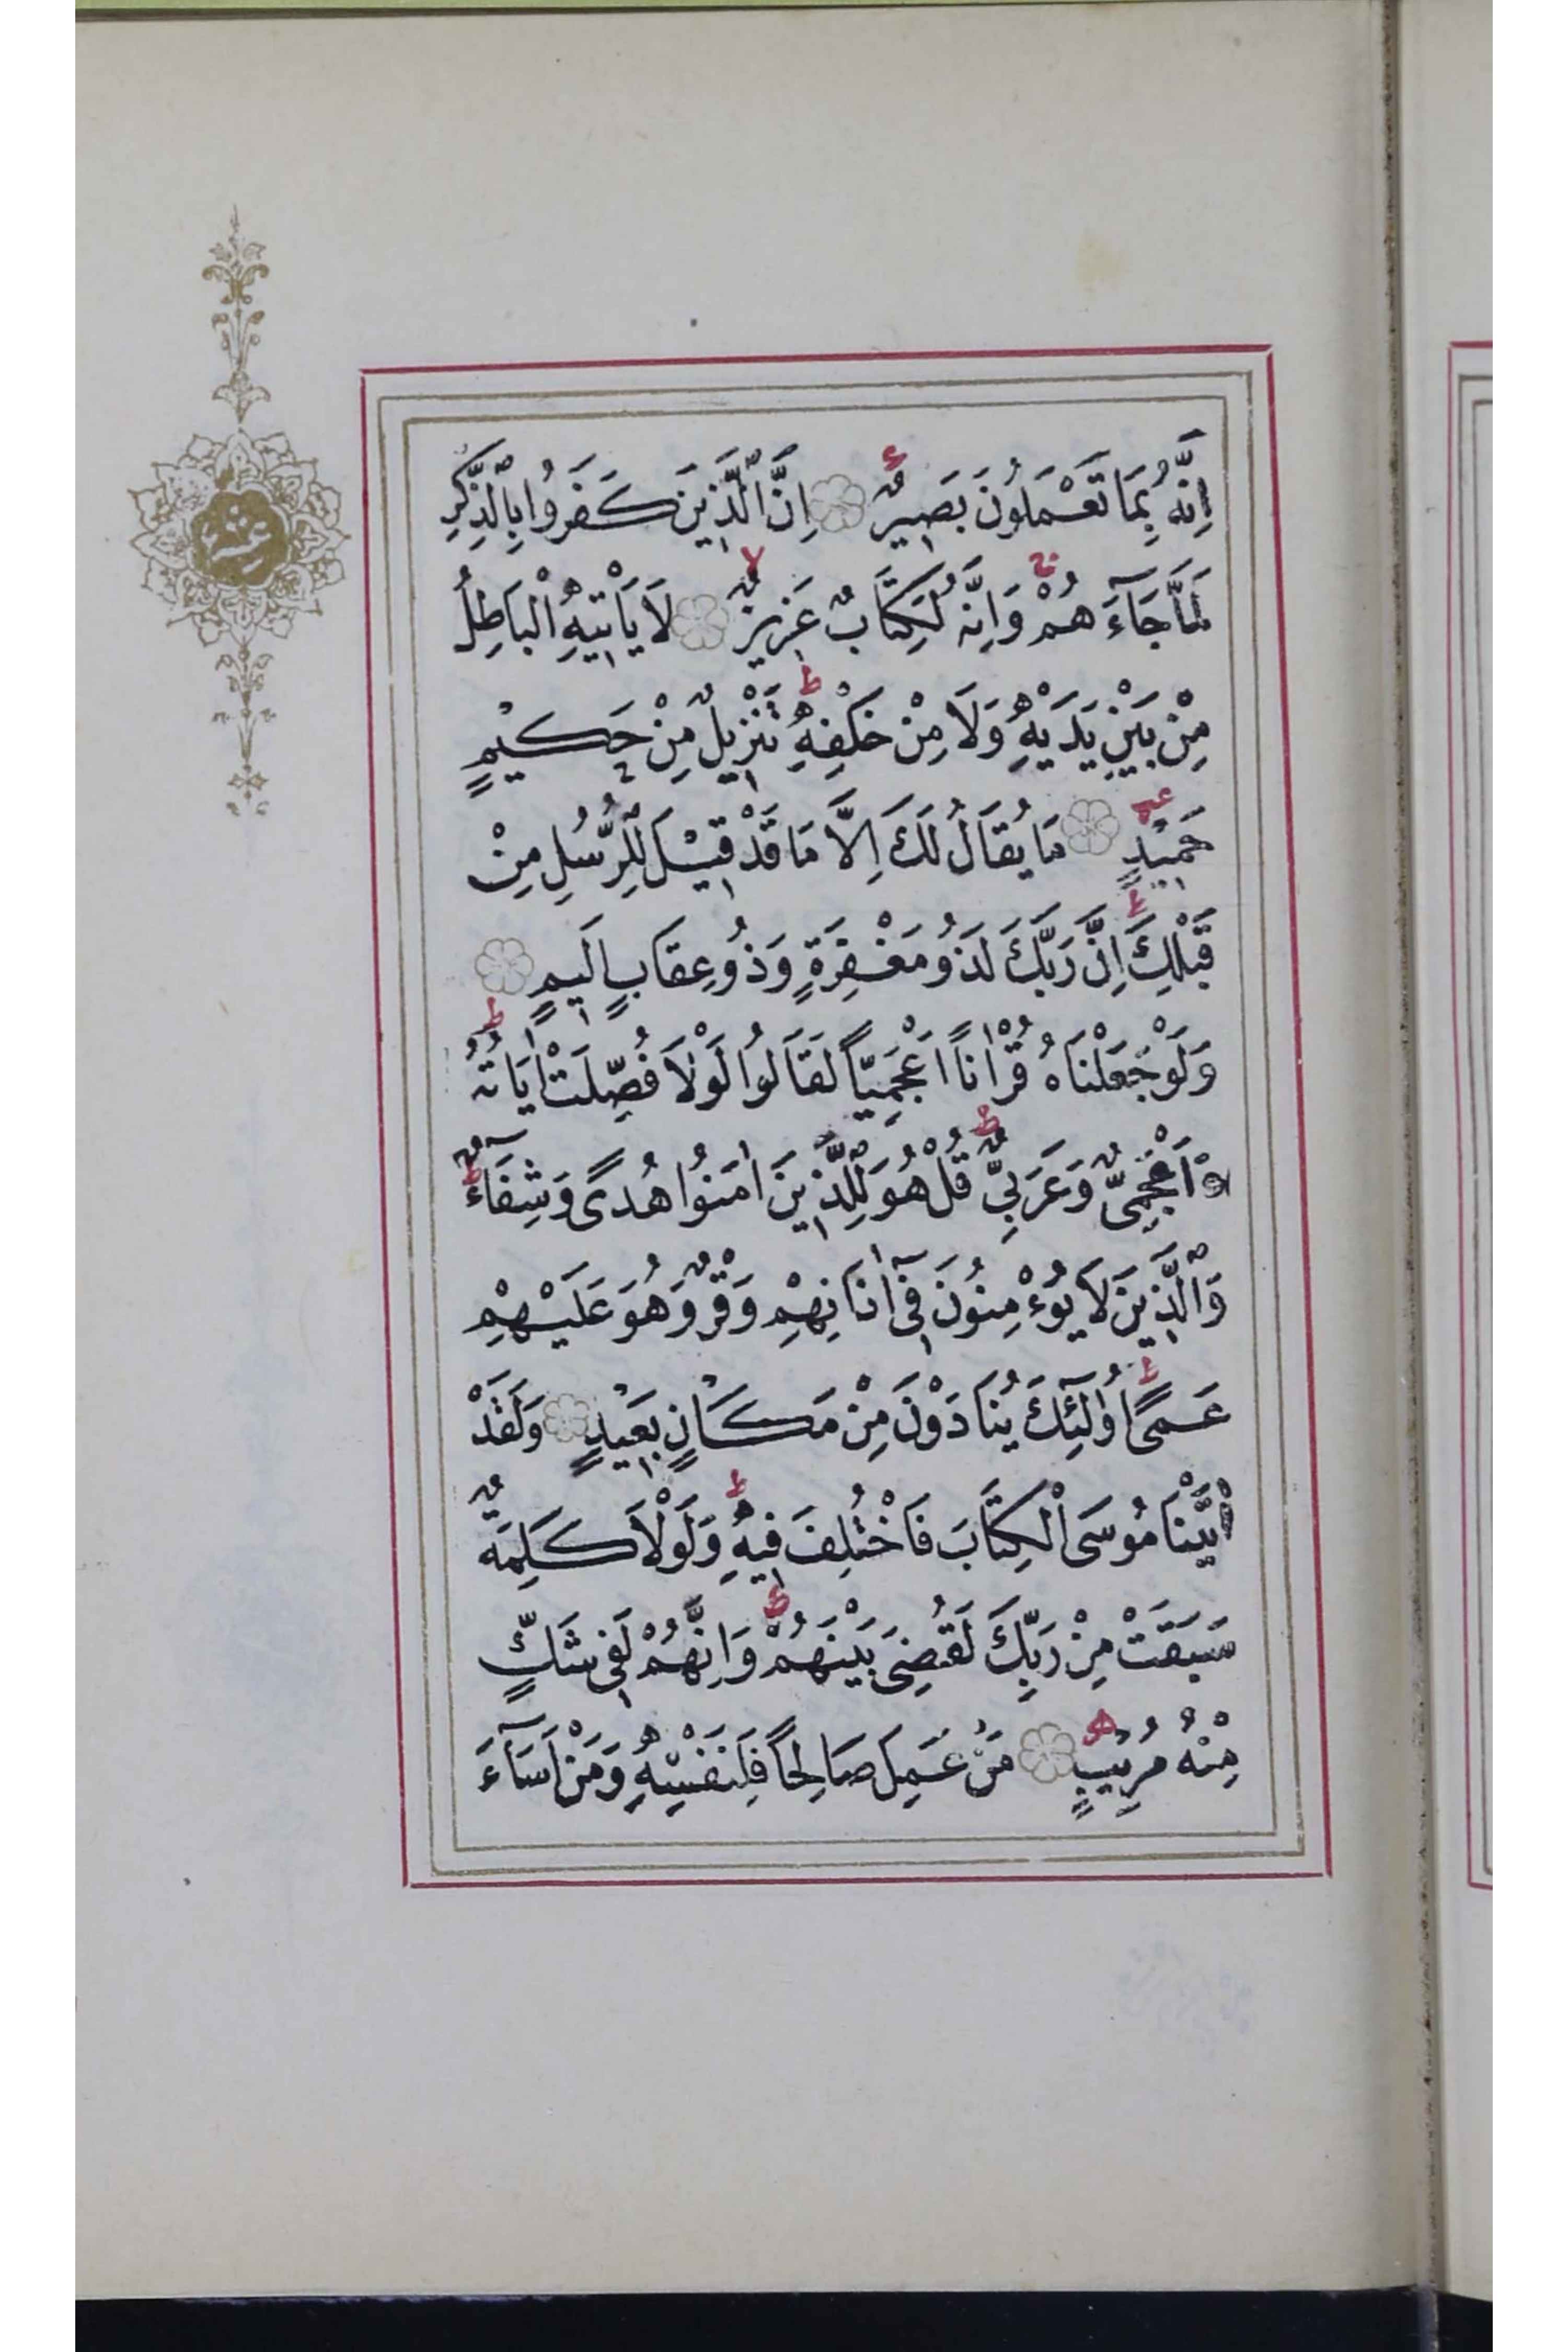 اِنَّهُ بِمَا تَعْمَلُونَ بَصِيرٌ اِنَّ الَّذِينَ كَفَرُوا بِالذِّكْرِ
لَمَّا جَآءَهُمْ وَاِنَّهُ لَكِتَابٌ عَزِيزٌ لَا يَأْتِيهِ الْبَاطِلُ
مِنْ بَيْنِ يَدَيْهِ وَلَا مِنْ خَلْفِهِ تَنْزِيلٌ مِنْ حَكِيمٍ
حَمِيدٍ مَا يُقَالُ لَكَ اِلَّا مَا قَدْ قِيلَ لِلرُّسُلِ مِنْ
قَبْلِكَ اِنَّ رَبَّكَ لَذُو مَغْفِرَةٍ وَذُو عِقَابٍ اَلِيمٍ
وَلَوْ جَعَلْنَاهُ قُرْاٰنًا اَعْجَمِيًّا لَقَالُوا لَوْلَا فُصِّلَتْ اٰيَاتُهُ
ءَاَعْجَمِىٌّ وَعَرَبِىٌّ قُلْ هُوَ لِلَّذِينَ اٰمَنُوا هُدًى وَشِفَآءٌ
وَالَّذِينَ لَا يُؤْمِنُونَ فِىٓ اٰذَانِهِمْ وَقْرٌ وَهُوَ عَلَيْهِمْ
عَمًى اُولٰٓئِكَ يُنَادَوْنَ مِنْ مَكَانٍ بَعِيدٍ وَلَقَدْ
اٰتَيْنَا مُوسَى الْكِتَابَ فَاخْتُلِفَ فِيهِ وَلَوْلَا كَلِمَةٌ
سَبَقَتْ مِنْ رَبِّكَ لَقُضِىَ بَيْنَهُمْ وَاِنَّهُمْ لَفِى شَكٍّ
مِنْهُ مُرِيبٍ مَنْ عَمِلَ صَالِحًا فَلِنَفْسِهِ وَمَنْ اَسَآءَ